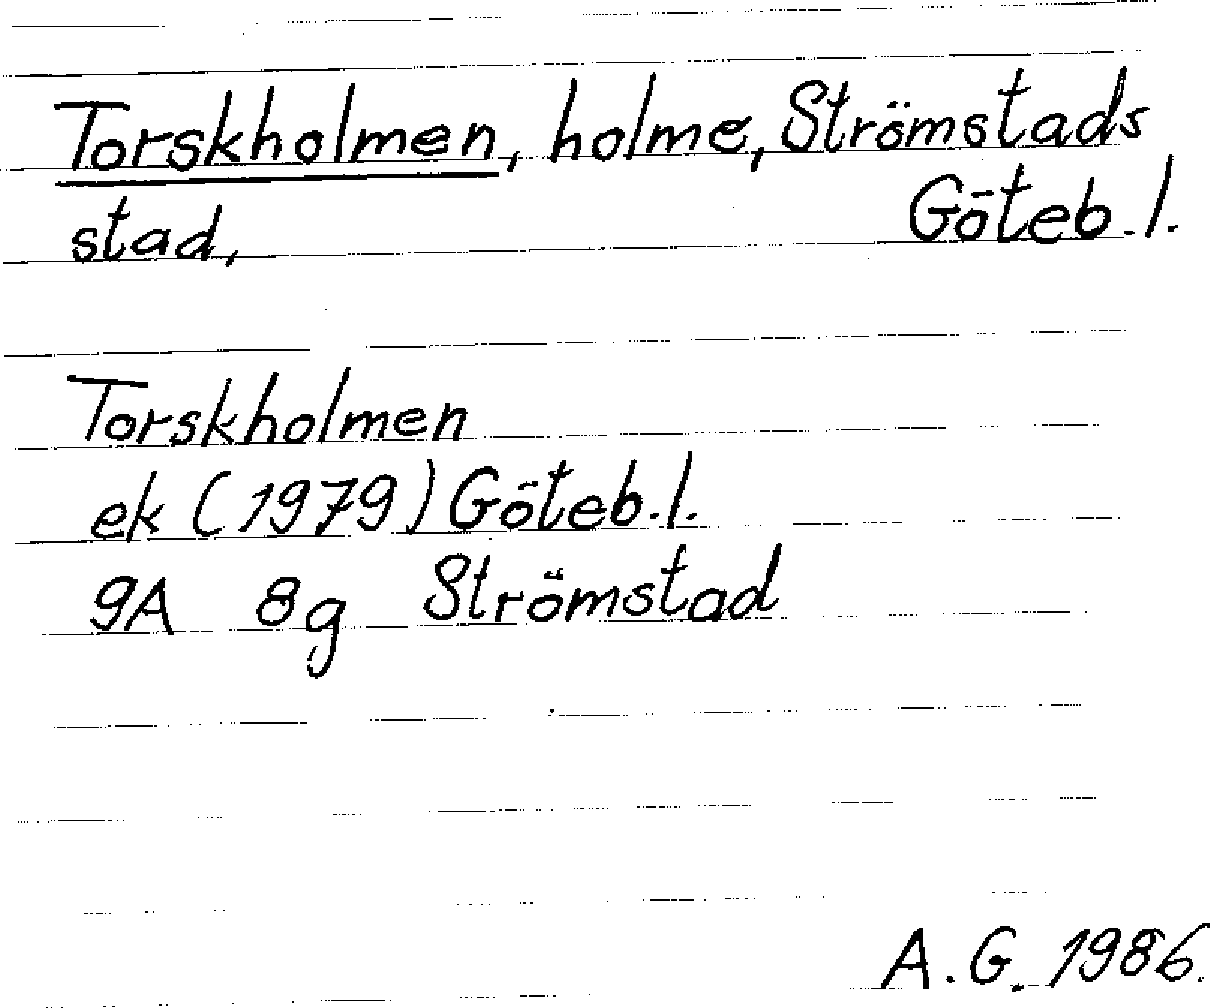 Torskholmen, holme, Strömstads
stad, Göteb. l.
Torskholmen
ek (1979) Göteb. l.
9A 8g Strömstad
A. G. 1986.